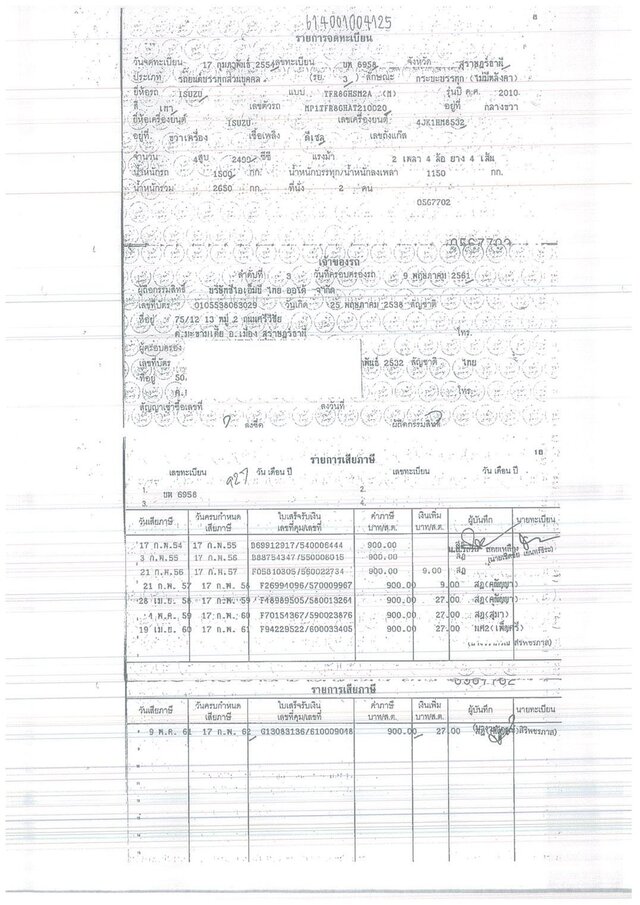 614001004125
8
รายการจดทะเบียน
วันจดทะเบียน 17 กุมภาพันธ์ 2554 เลขทะเบียน บต 6958 จังหวัด สุราษฎร์ธานี
ประเภท รถยนต์บรรทุกส่วนบุคคล (รย. 3 ) ลักษณะ กระบะบรรทุก (ไม่มีหลังคา)
ยี่ห้อรถ ISUZU แบบ TFR86HSM2A (M) รุ่นปี ค.ศ. 2010
สี เทา เลขตัวรถ MP1TFR86HAT210020 อยู่ที่ กลางขวา
ยี่ห้อเครื่องยนต์ ISUZU เลขเครื่องยนต์ 4JK1HM8532
อยู่ที่ ขวาเครื่อง เชื้อเพลิง ดีเซล เลขถังแก๊ส
จำนวน 4 สูบ 2499 ซีซี แรงม้า 2 เพลา 4 ล้อ ยาง 4 เส้น
น้ำหนักรถ 1500 กก. น้ำหนักบรรทุก/น้ำหนักลงเพลา 1150 กก.
น้ำหนักรวม 2650 กก. ที่นั่ง 2 คน
0567702
0567702
เจ้าของรถ
ลำดับที่ 3 วันที่ครอบครองรถ 9 พฤษภาคม 2561
ผู้ถือกรรมสิทธิ์ บริษัทไอเอ็มยี ไทย ออโต้ จำกัด
เลขที่บัตร 0105538063029 วันเกิด 25 พฤษภาคม 2538 สัญชาติ
ที่อยู่ 75/12 13 หมู่ 2 ถนนศรีวิชัย
ต.มะขามเตี้ย อ.เมือง สุราษฎร์ธานี โทร.
ผู้ครอบครอง
เลขที่บัตร พันธ์ 2532 สัญชาติ ไทย
ที่อยู่ 50.
ต. โทร.
สัญญาเช่าซื้อเลขที่ ลงวันที่
ลงชื่อ ผู้ถือกรรมสิทธิ์
18
รายการเสียภาษี
เลขทะเบียน วัน เดือน ปี เลขทะเบียน วัน เดือน ปี
1. บต 6958 2.
3. 4.
วันเสียภาษี วันครบกำหนดเสียภาษี ใบเสร็จรับเงิน เลขที่คุม/เลขที่ ค่าภาษี บาท/ส.ต. เงินเพิ่ม บาท/ส.ต. ผู้บันทึก นายทะเบียน
17 ก.พ.54 17 ก.พ.55 B69912917/540006444 900.00 สฎ
3 ก.พ.55 17 ก.พ.56 B88754347/550006015 900.00 สฎ
21 ก.พ.56 17 ก.พ.57 F05810305/560022734 900.00 9.00 สฎ
21 ก.พ. 57 17 ก.พ. 58 F26994096/570009967 900.00 9.00 สฎ(ศุธัญญา)
28 เม.ย. 58 17 ก.พ. 59 F48989505/580013264 900.00 27.00 สฎ(ศุธัญญา)
4 พ.ค. 59 17 ก.พ. 60 F70154367/590023876 900.00 27.00 สฎ(สุมา)
19 เม.ย. 60 17 ก.พ. 61 F94229522/600033405 900.00 27.00
0567702
รายการเสียภาษี
วันเสียภาษี วันครบกำหนดเสียภาษี ใบเสร็จรับเงิน เลขที่คุม/เลขที่ ค่าภาษี บาท/ส.ต. เงินเพิ่ม บาท/ส.ต. ผู้บันทึก นายทะเบียน
9 พ.ค. 61 17 ก.พ. 62 G13083136/610009048 900.00 27.00 สฎ